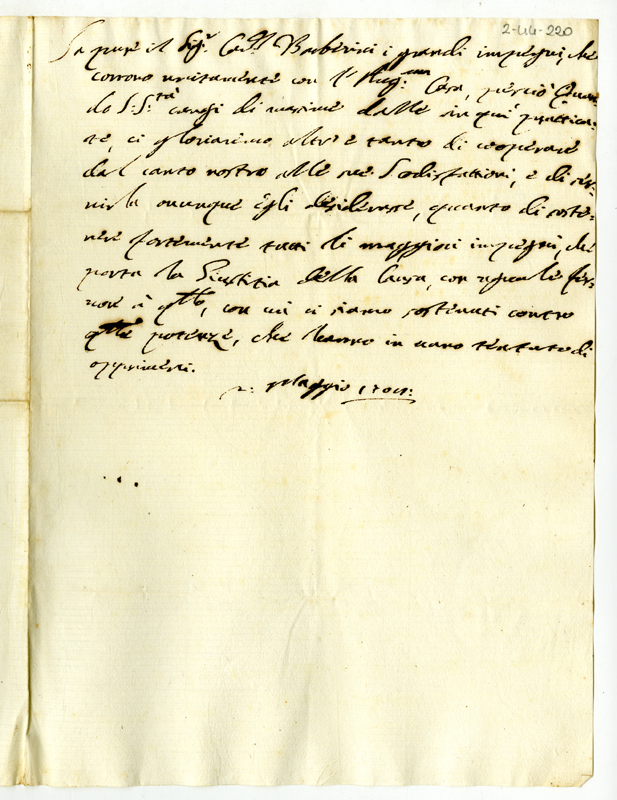 2-44-220
Sa pure il Sig.r Cad.l Barberini i grandi impegni, che
corrono unitamente con l' Aug.ma Casa, perciò quan
do S. S.tà cangi di massime dalle in qui prattica-
te, ci gloriaremo altr'e tanto di cooperare
dal canto nostro alle sue Sodisfattioni, e di ser-
virla ovunque Egli desiderasse, quanto di soste-
nere fortemente tutti li maggiori impegni, che
porta la Giustitia della Causa, con uguale fer-
vore à q.llo, con cui ci siamo sostenuti contro
q.lle potenze, che hanno in vano tentato di
opprimerci.
2. Maggio